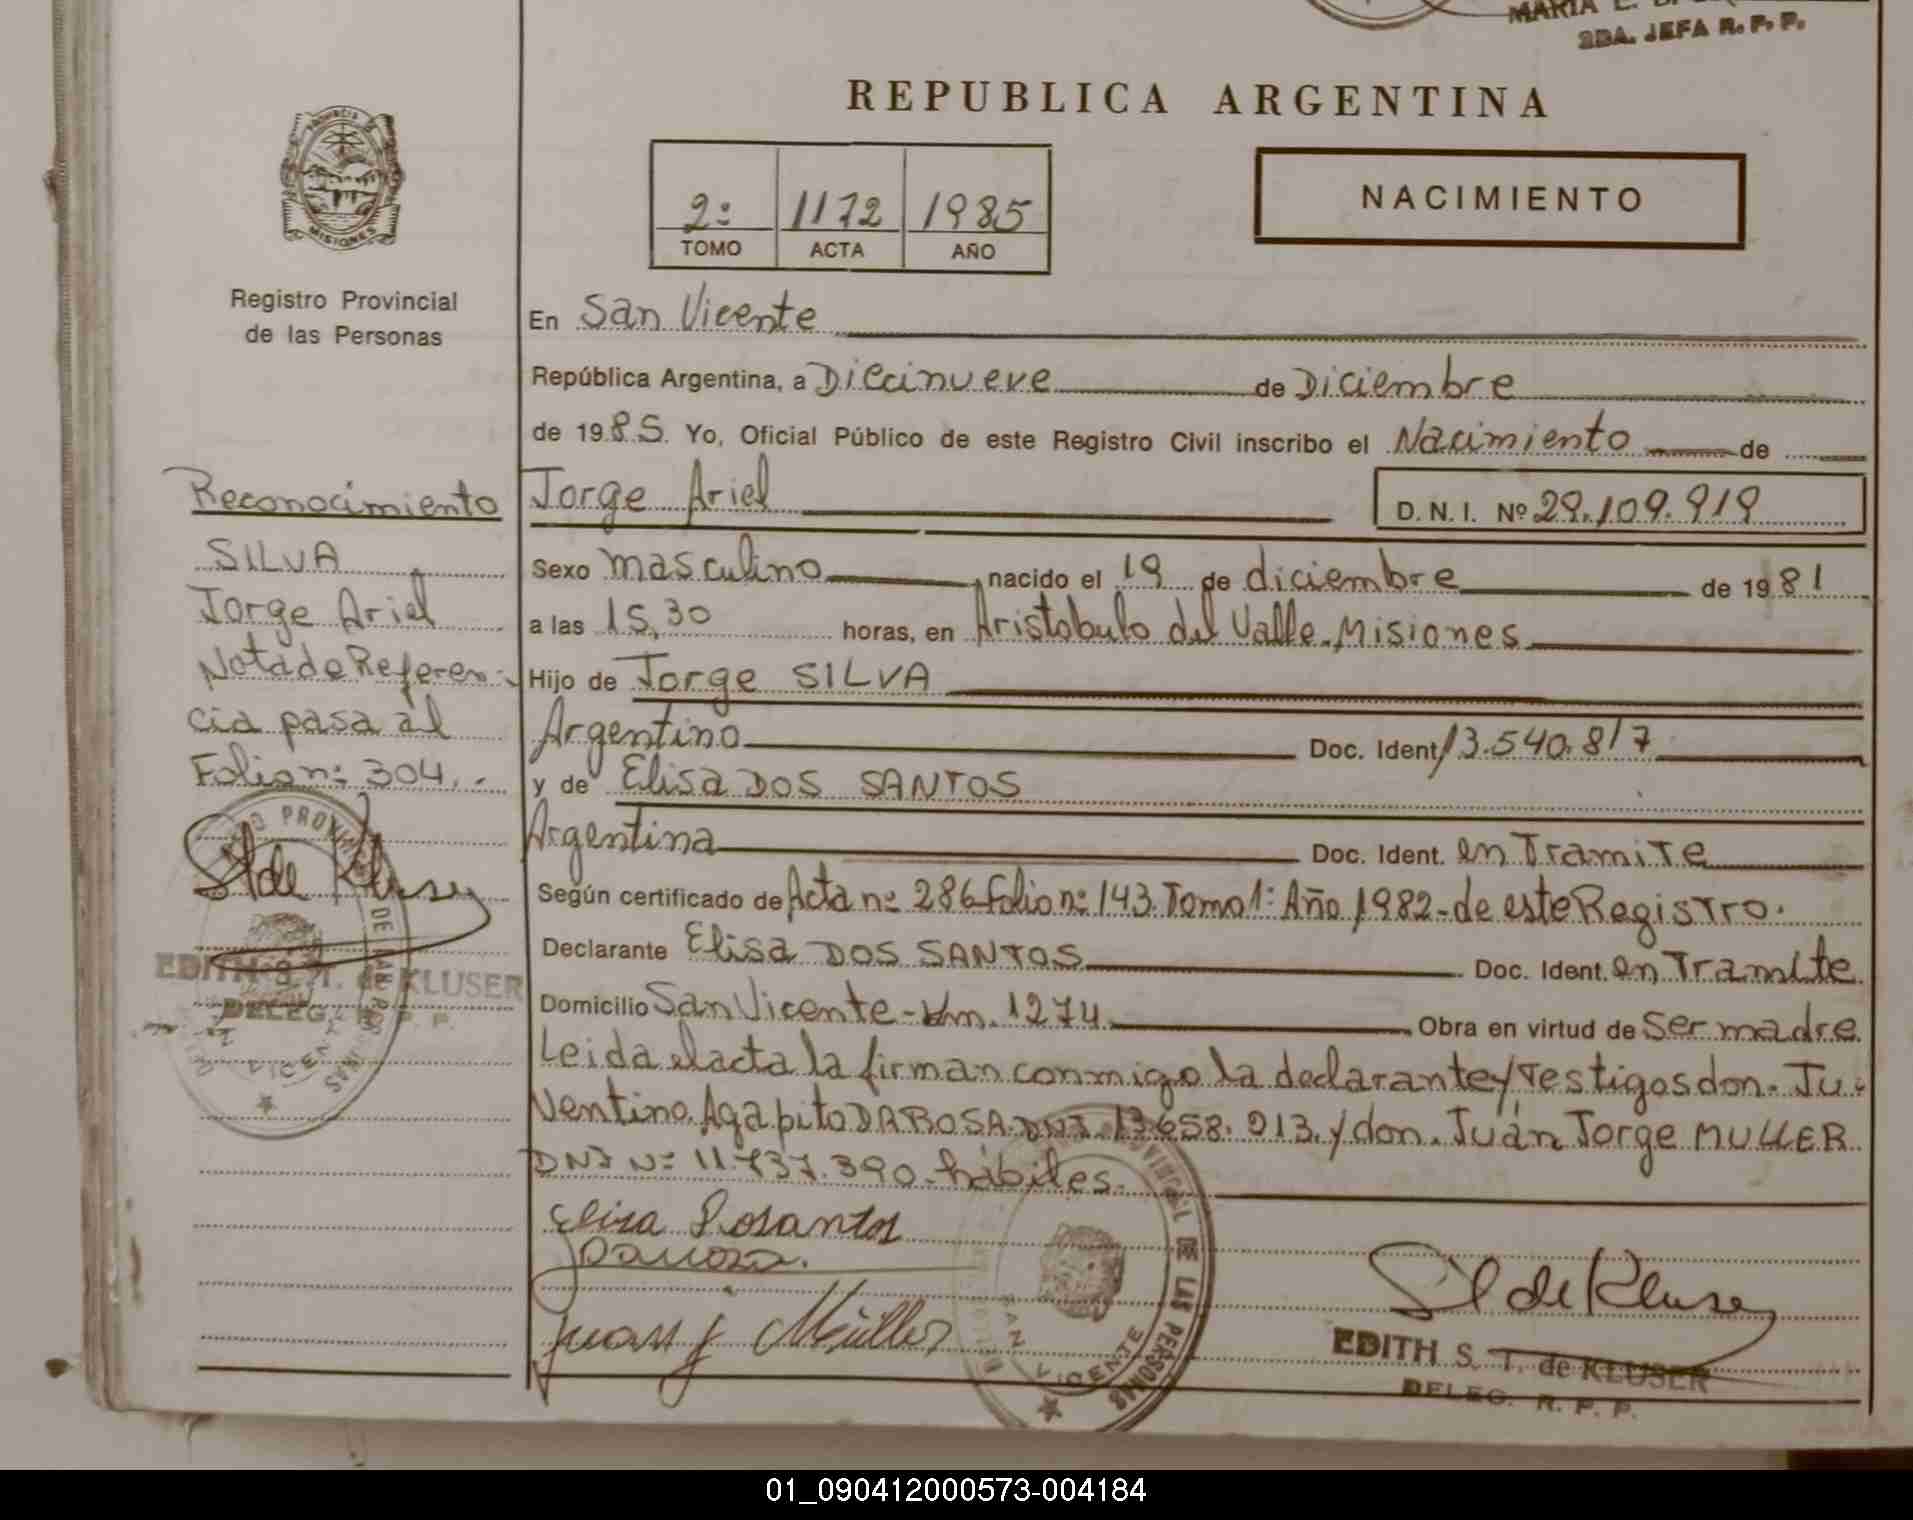 MARIA E.
2DA. JEFA R. P. P.
REPUBLICA ARGENTINA
PROVINCIA DE
MISIONES
2º 1172 1985
TOMO ACTA AÑO
NACIMIENTO
Registro Provincial
de las Personas
En San Vicente
República Argentina, a Diecinueve de Diciembre
de 1985. Yo, Oficial Público de este Registro Civil inscribo el Nacimiento de
Jorge Ariel D.N.I. Nº 29.109.919
Sexo masculino, nacido el 19 de diciembre de 1981
a las 15,30 horas, en Aristobulo del Valle-Misiones
Hijo de Jorge SILVA
Argentino Doc. Ident. 13.540.817
y de Elisa DOS SANTOS
Argentina Doc. Ident. en Tramite
Según certificado de Acta nº 286 folio nº 143 Tomo 1º Año 1982-de este Registro.
Declarante Elisa DOS SANTOS Doc. Ident. en Tramite
Domicilio San Vicente-Km. 1274. Obra en virtud de Ser madre
Leida el acta la firman conmigo la declarante y Testigos don. Ju-
ventino Agapito DA ROSA DNI. 13.658.913. y don. Juan Jorge MULLER
DNI Nº 11.737.390-hábiles.
Reconocimiento
SILVA
Jorge Ariel
Nota de Referen-
cia pasa al
Folio nº 304.-
St de Kluser
EDITH S. T. de KLUSER
DELEG. R. P. P.
Elisa Dosantos
Darosa.
Juan J Müller
PROVINCIAL DE LAS PERSONAS
SAN VICENTE
St de Kluser
EDITH S. T. de KLUSER
DELEG. R. P. P.
01_090412000573-004184